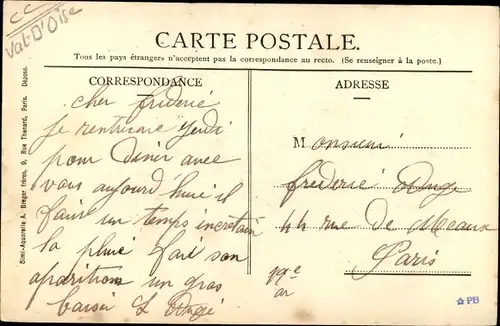 CC
Val-D'Oise
CARTE POSTALE.
Tous les pays étrangers n'acceptent pas la correspondance au recto. (Se renseigner à la poste.)
CORRESPONDANCE
ADRESSE
Simi-Aquarelle A. Breger frères, 9, Rue Thenard, Paris. Déposé.
cher frideric
Je rentrerai jeudi
pour Diner avec
vous aujourd'hui il
faire un temps incertain
la pluie fait son
aparition un gros
baiser L Angé
Monsieur
frederic Angé
44 rue De Meaux
Paris
19e
ar
PB